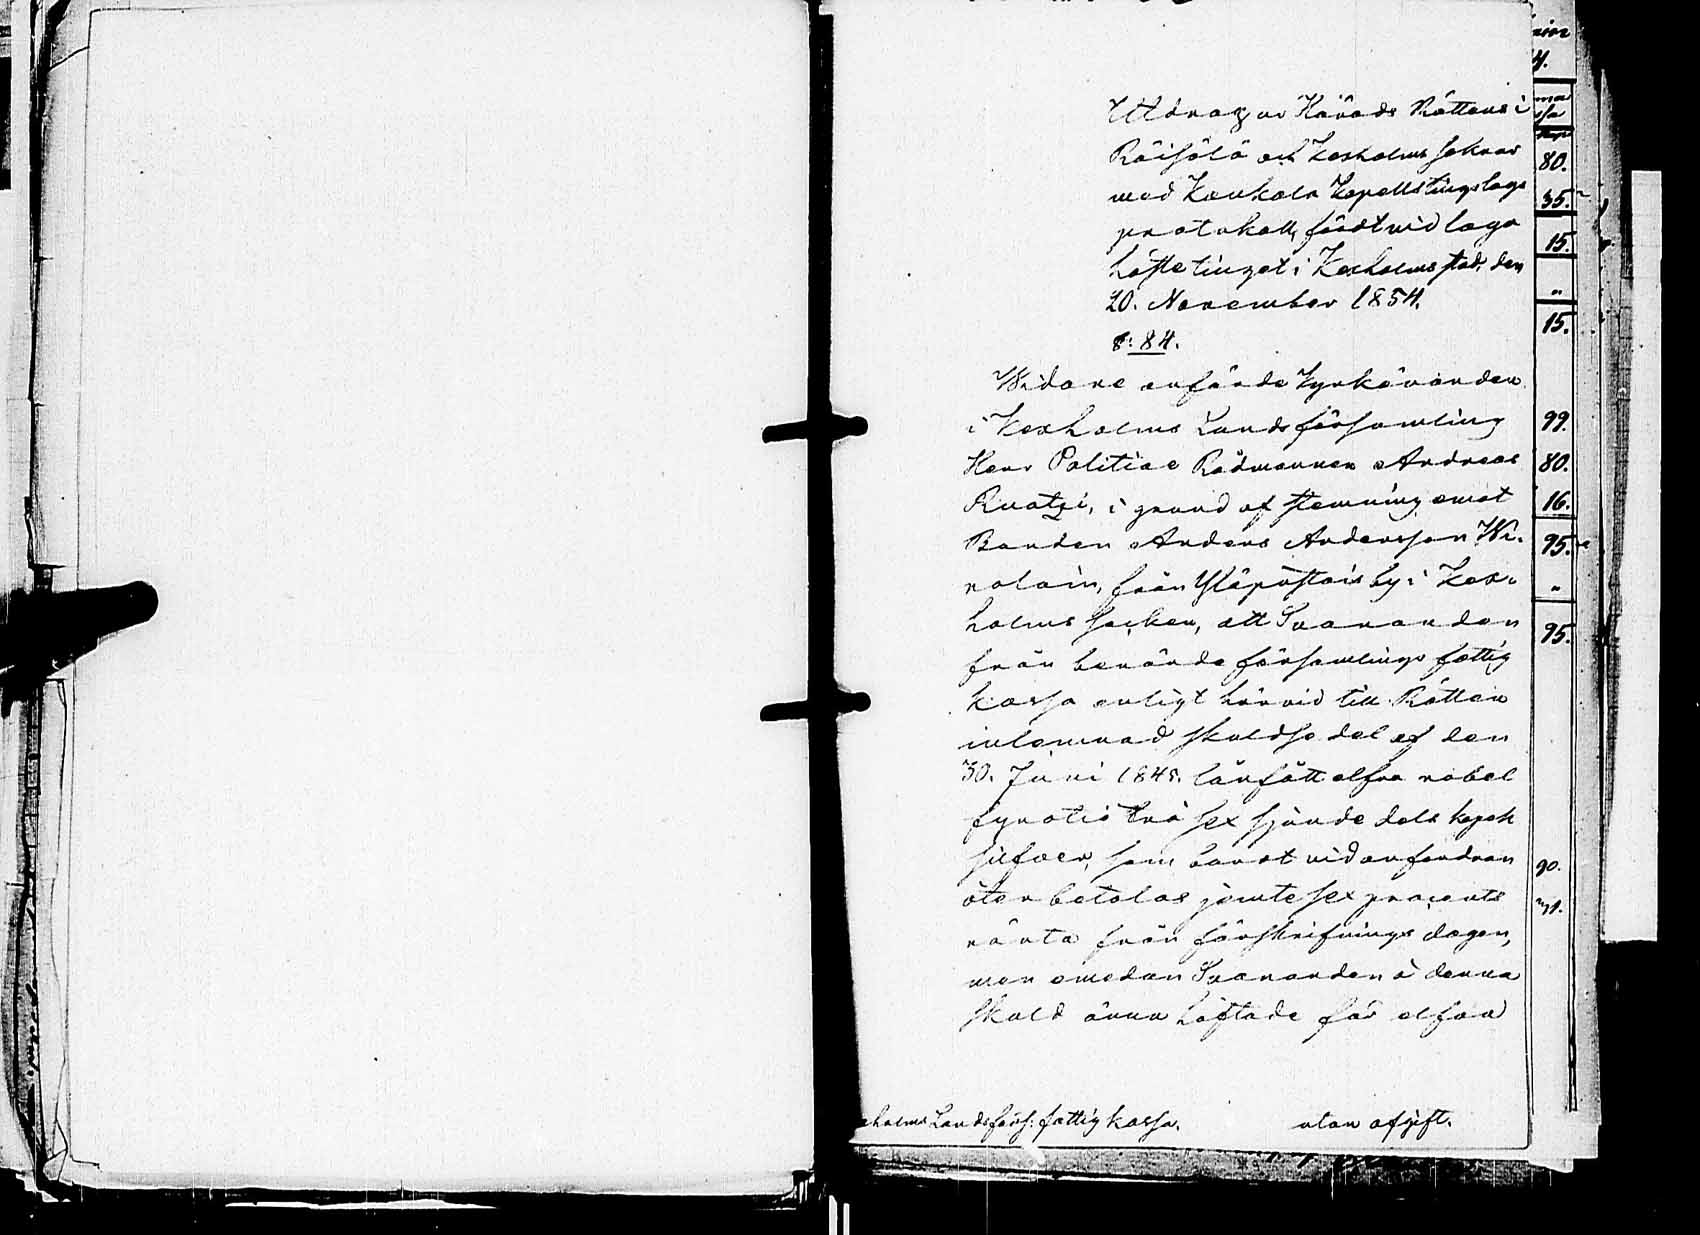 Utdrag ur Härads Rättens i
Räisälä och Kexholms soknar
med Kaukola Kapells tingslags
protokoll, fördt vid laga
hösttetinget i Kexholms stad, den
20. November 1854.
§: 84.
Widare anförde Kyrkövärden
i Kexholms Landsförsamling
Herr Politiae Rådmannen Andreas
Ruatzi, i grund af stemning emot
Bonden Anders Andersson Wi-
rolain, från Yläpustois by i Kex-
holms socken, att Svaranden
från berörde församlings fattig
kassa enligt härvid till Rätten
inlemnad skuldsedel af den
30. Juni 1848. lånfått elfva rubel
fyratio två sex sjunde dels kopek
silfver, som borat vid anfordran
återbetalas jemte sex procents
ränta från förskrifnings dagen,
men emedan Svaranden å denna
skuld ännu häftade för elfva
holms Landsförs: fattig kassa. utan afgift.
80.
35.
15.
"
15.
99.
80.
16.
95.
"
95.
90.